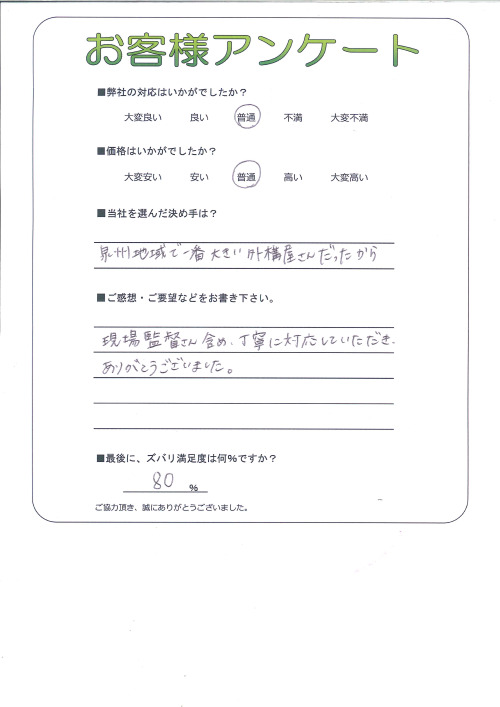 お客様アンケート
■弊社の対応はいかがでしたか？
大変良い 良い 普通 不満 大変不満
■価格はいかがでしたか？
大変安い 安い 普通 高い 大変高い
■当社を選んだ決め手は？
泉州地域で一番大きい外構屋さんだったから
■ご感想・ご要望などをお書き下さい。
現場監督さん含め、丁寧に対応していただき、
ありがとうございました。
■最後に、ズバリ満足度は何％ですか？
80 ％
ご協力頂き、誠にありがとうございました。